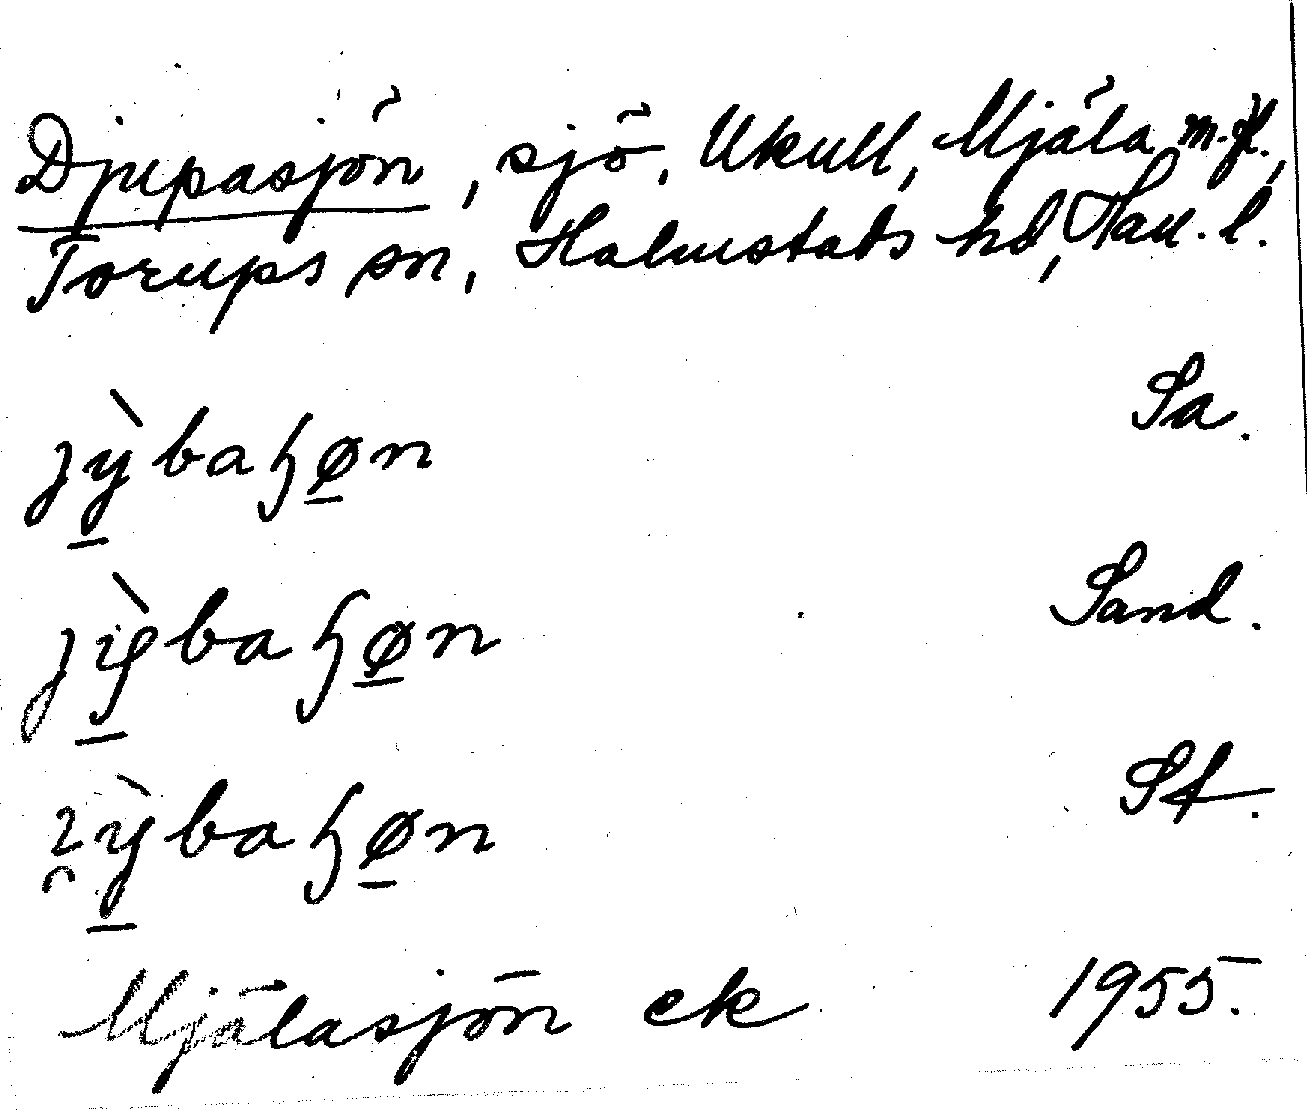 Djupasjön, sjö, Ukull, Mjäla m.fl.,
Torups sn, Halmstads hd, Hall. l.
jỳ̱baɧø̱n Sa.
Sand.
St.
Mjälasjön ek 1955.